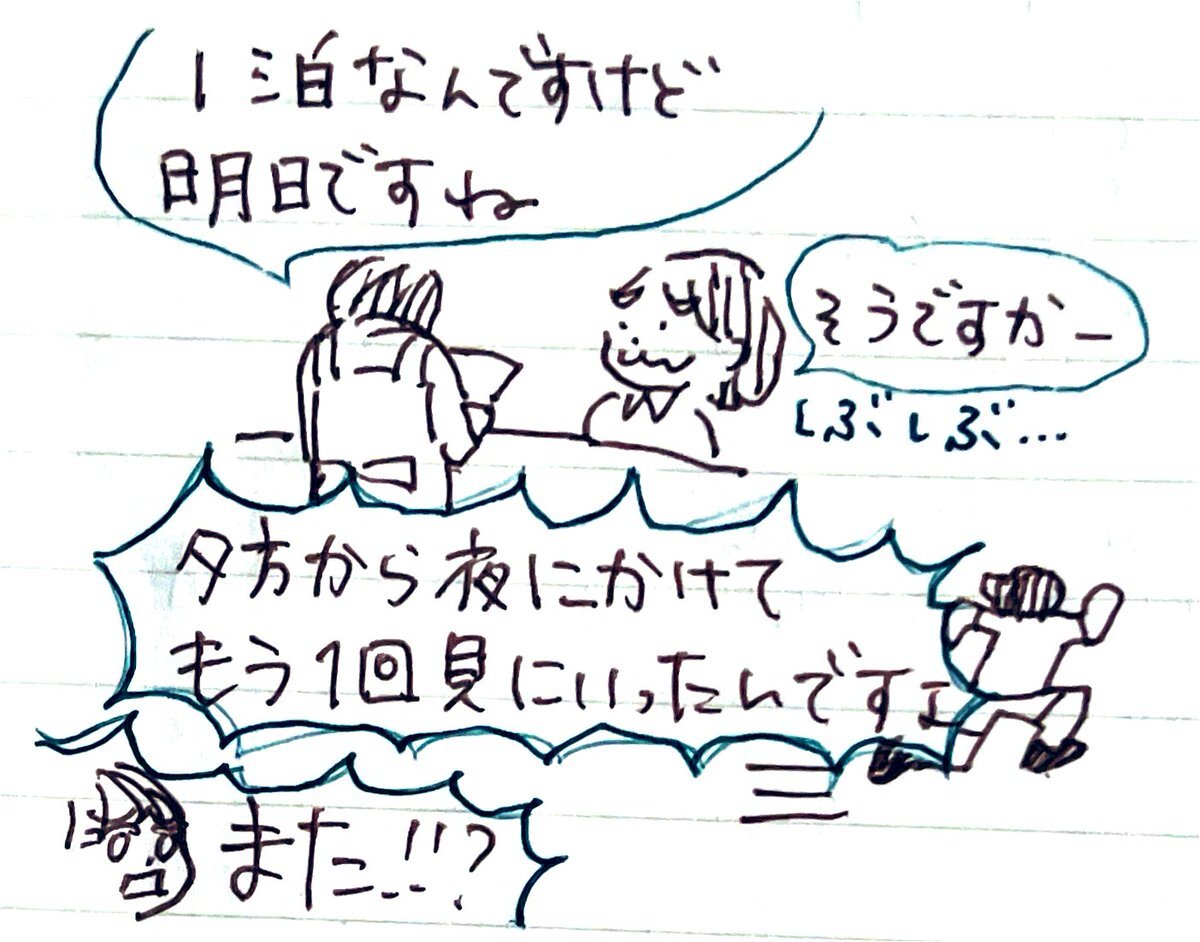 1泊なんですけど
明日ですね
そうですかー
しぶしぶ…
夕方から夜にかけて
もう1回見にいったんですェ
また!!?